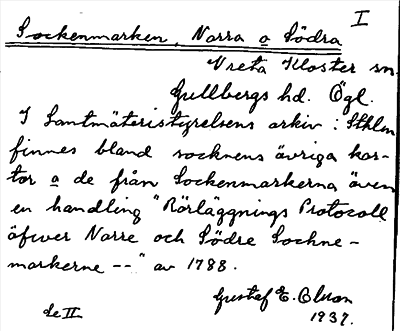 I
Sockenmarken, Norra o Södra
Vreta Kloster sn.
Gullbergs hd. Ögl.
I Lantmäteristyrelsens arkiv i Sthlm
finnes bland socknens övriga kar-
tor o de från Sockenmarkerna även
en handling "Rörläggnings Protocoll
öfwer Norre och Södre Sochne-
markerne --" av 1788.
Gustaf E. Olson
de II 1937.